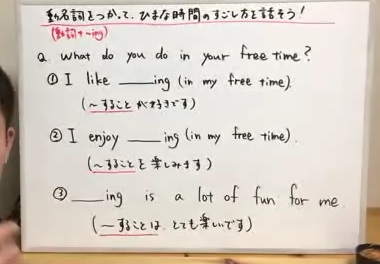 動名詞をつかって、ひまな時間のすごし方を話そう!
(動詞+~ing)
Q. What do you do in your free time?
① I like ___ing (in my free time).
(~することが好きです)
② I enjoy ___ing (in my free time).
(~することを楽しみます)
③ ___ing is a lot of fun for me.
(~することは、とても楽しいです)